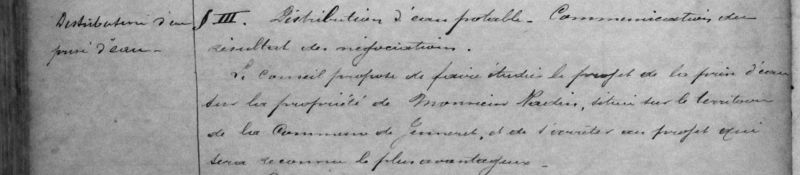 Distribution d'eau
prise d'eau -
§ III. Distribution d'eau potable - Communication du
résultat des négociations.
Le Conseil propose de faire étudier le projet de la prise d'eau
sur la propriété de Monsieur située sur le territoire
de la Commune de et de s'arrêter au projet qui
sera reconnu le plus avantageux -